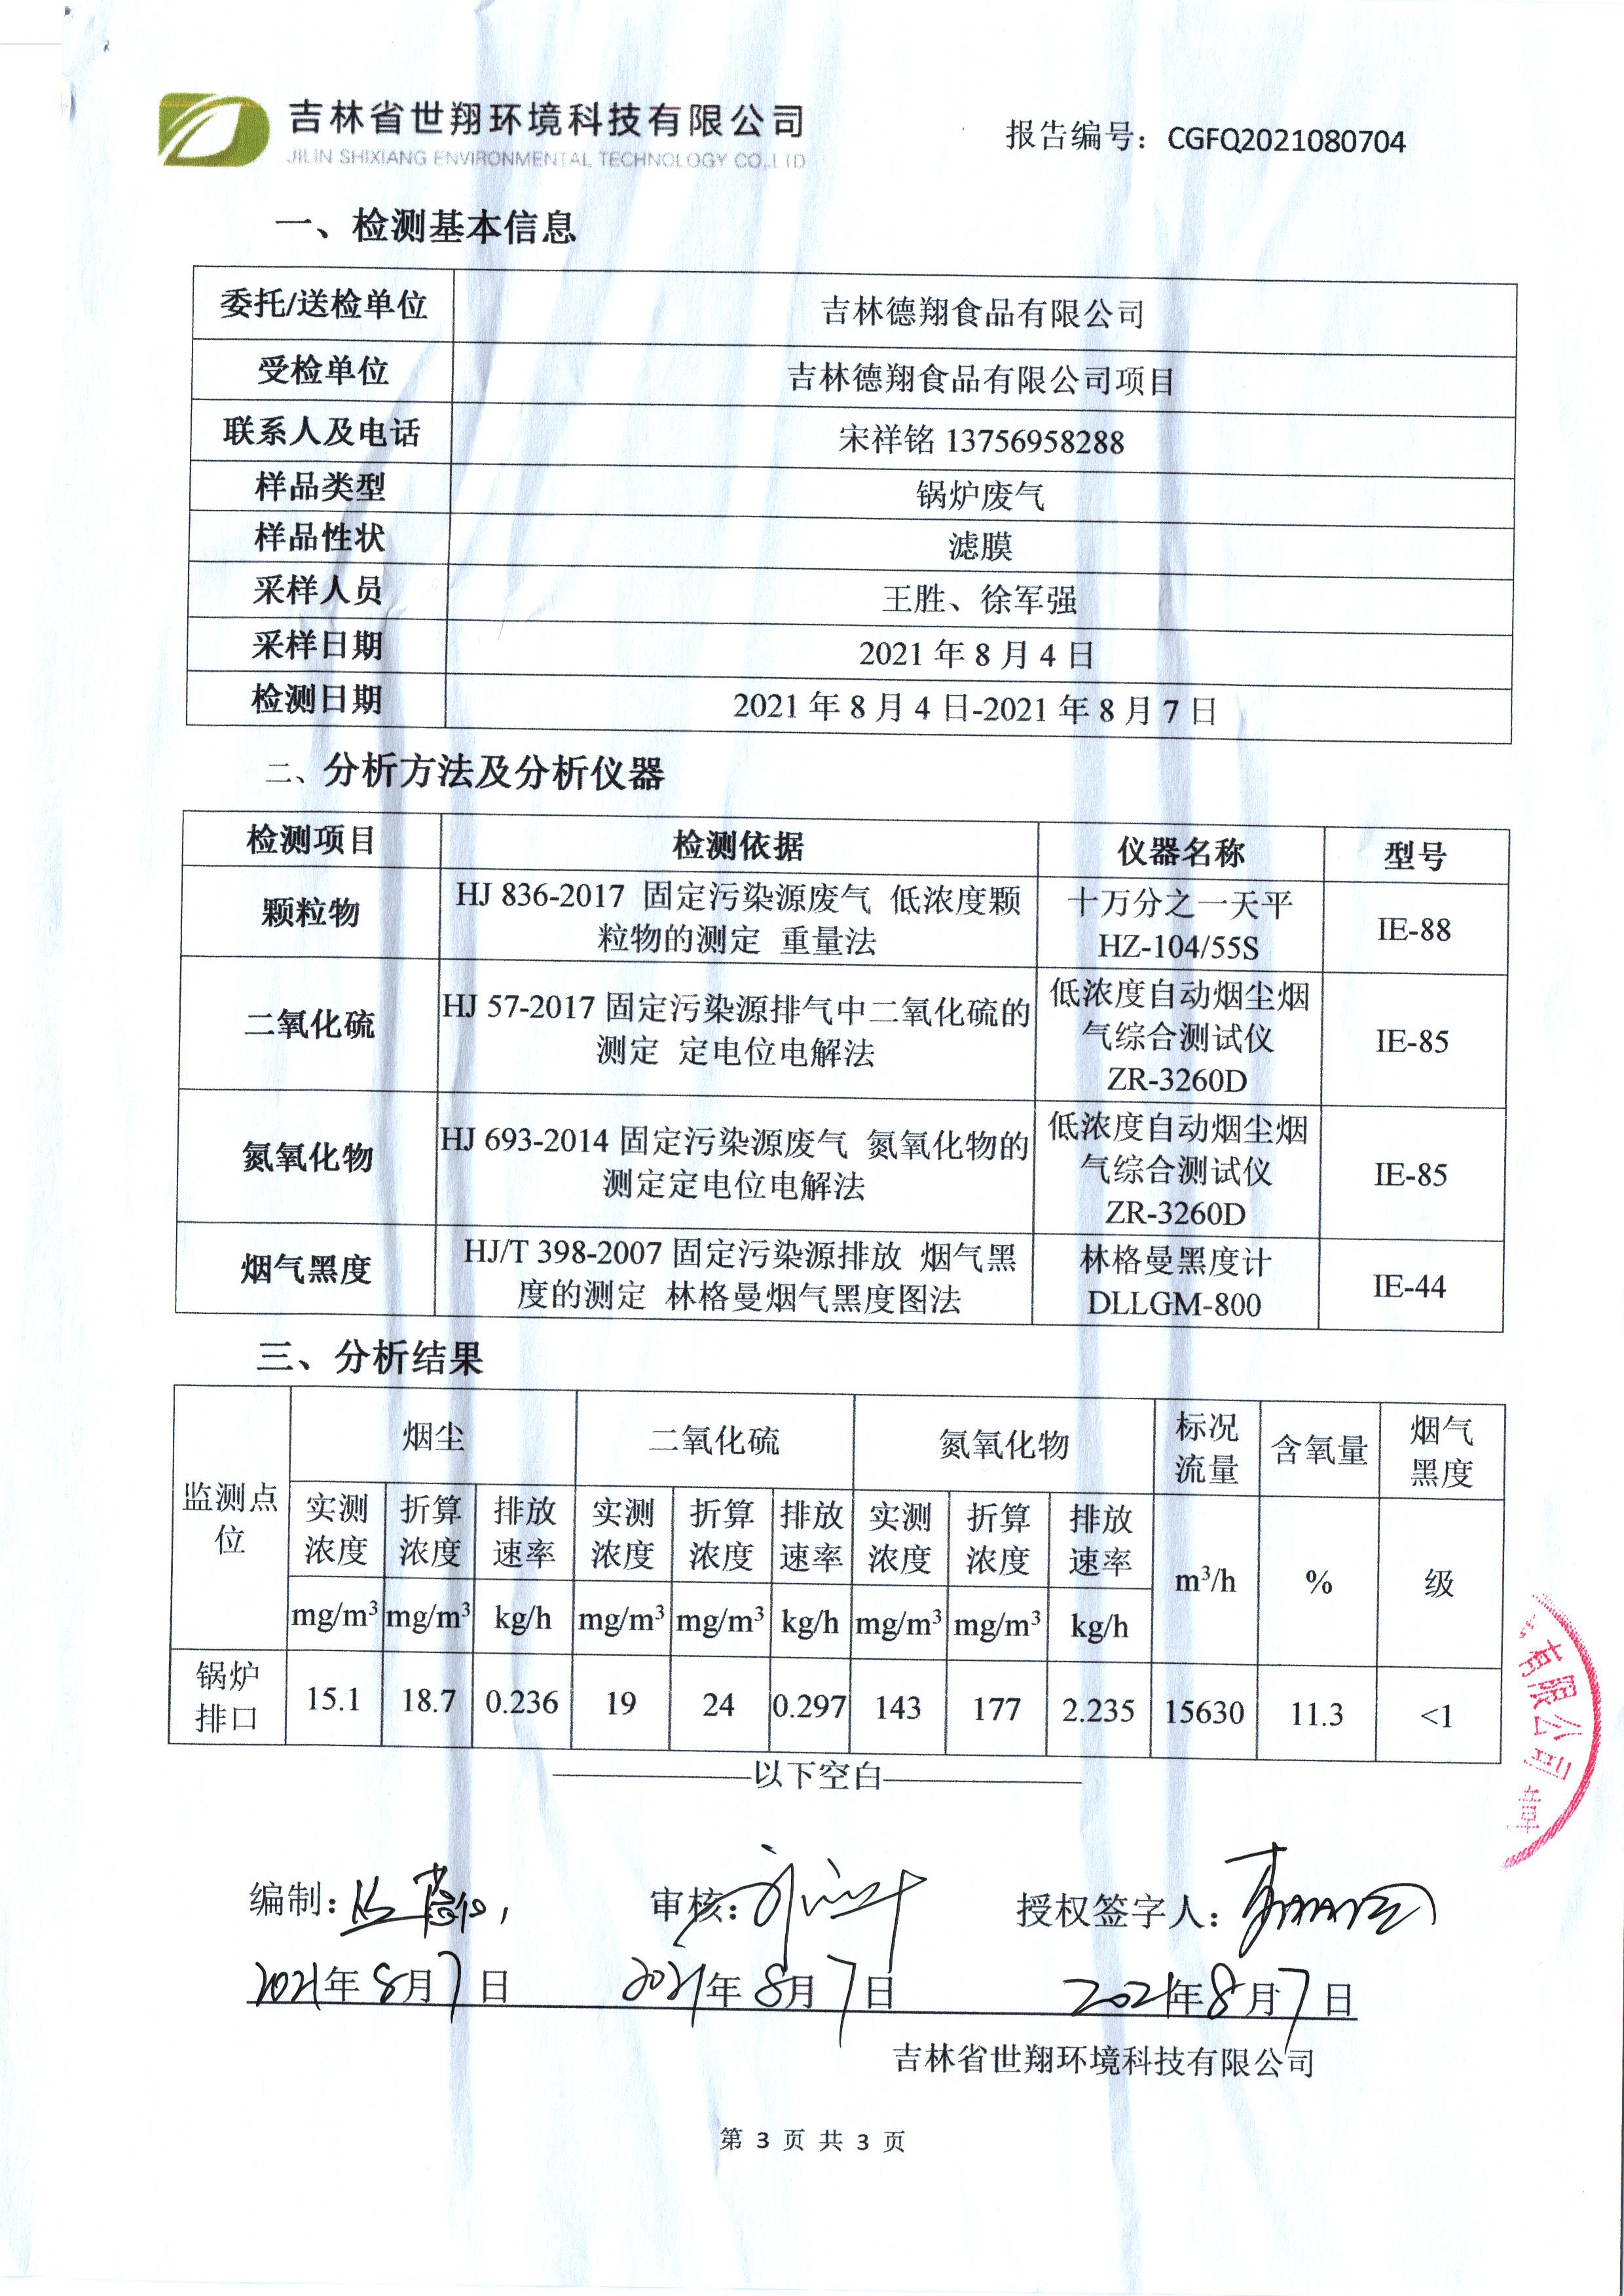 吉林省世翔环境科技有限公司
JILIN SHIXIANG ENVIRONMENTAL TECHNOLOGY CO,.LTD
报告编号：CGFQ2021080704
一、检测基本信息
委托/送检单位 吉林德翔食品有限公司
受检单位 吉林德翔食品有限公司项目
联系人及电话 宋祥铭 13756958288
样品类型 锅炉废气
样品性状 滤膜
采样人员 王胜、徐军强
采样日期 2021 年 8 月 4 日
检测日期 2021 年 8 月 4 日-2021 年 8 月 7 日
二、分析方法及分析仪器
检测项目 检测依据 仪器名称 型号
颗粒物
HJ 836-2017 固定污染源废气 低浓度颗
粒物的测定 重量法
十万分之一天平
HZ-104/55S
IE-88
二氧化硫
HJ 57-2017 固定污染源排气中二氧化硫的
测定 定电位电解法
低浓度自动烟尘烟
气综合测试仪
ZR-3260D
IE-85
氮氧化物
HJ 693-2014 固定污染源废气 氮氧化物的
测定定电位电解法
低浓度自动烟尘烟
气综合测试仪
ZR-3260D
IE-85
烟气黑度
HJ/T 398-2007 固定污染源排放 烟气黑
度的测定 林格曼烟气黑度图法
林格曼黑度计
DLLGM-800
IE-44
三、分析结果
监测点
位
烟尘
二氧化硫
氮氧化物
标况
流量
含氧量
烟气
黑度
实测
浓度
折算
浓度
排放
速率
实测
浓度
折算
浓度
排放
速率
实测
浓度
折算
浓度
排放
速率
m³/h
%
级
mg/m³ mg/m³ kg/h mg/m³ mg/m³ kg/h mg/m³ mg/m³ kg/h
锅炉
排口
15.1 18.7 0.236 19 24 0.297 143 177 2.235 15630 11.3 <1
以下空白
编制： 审核： 授权签字人：
2021年8月7日 2021年8月7日 2021年8月7日
吉林省世翔环境科技有限公司
第 3 页 共 3 页
有限公司
章